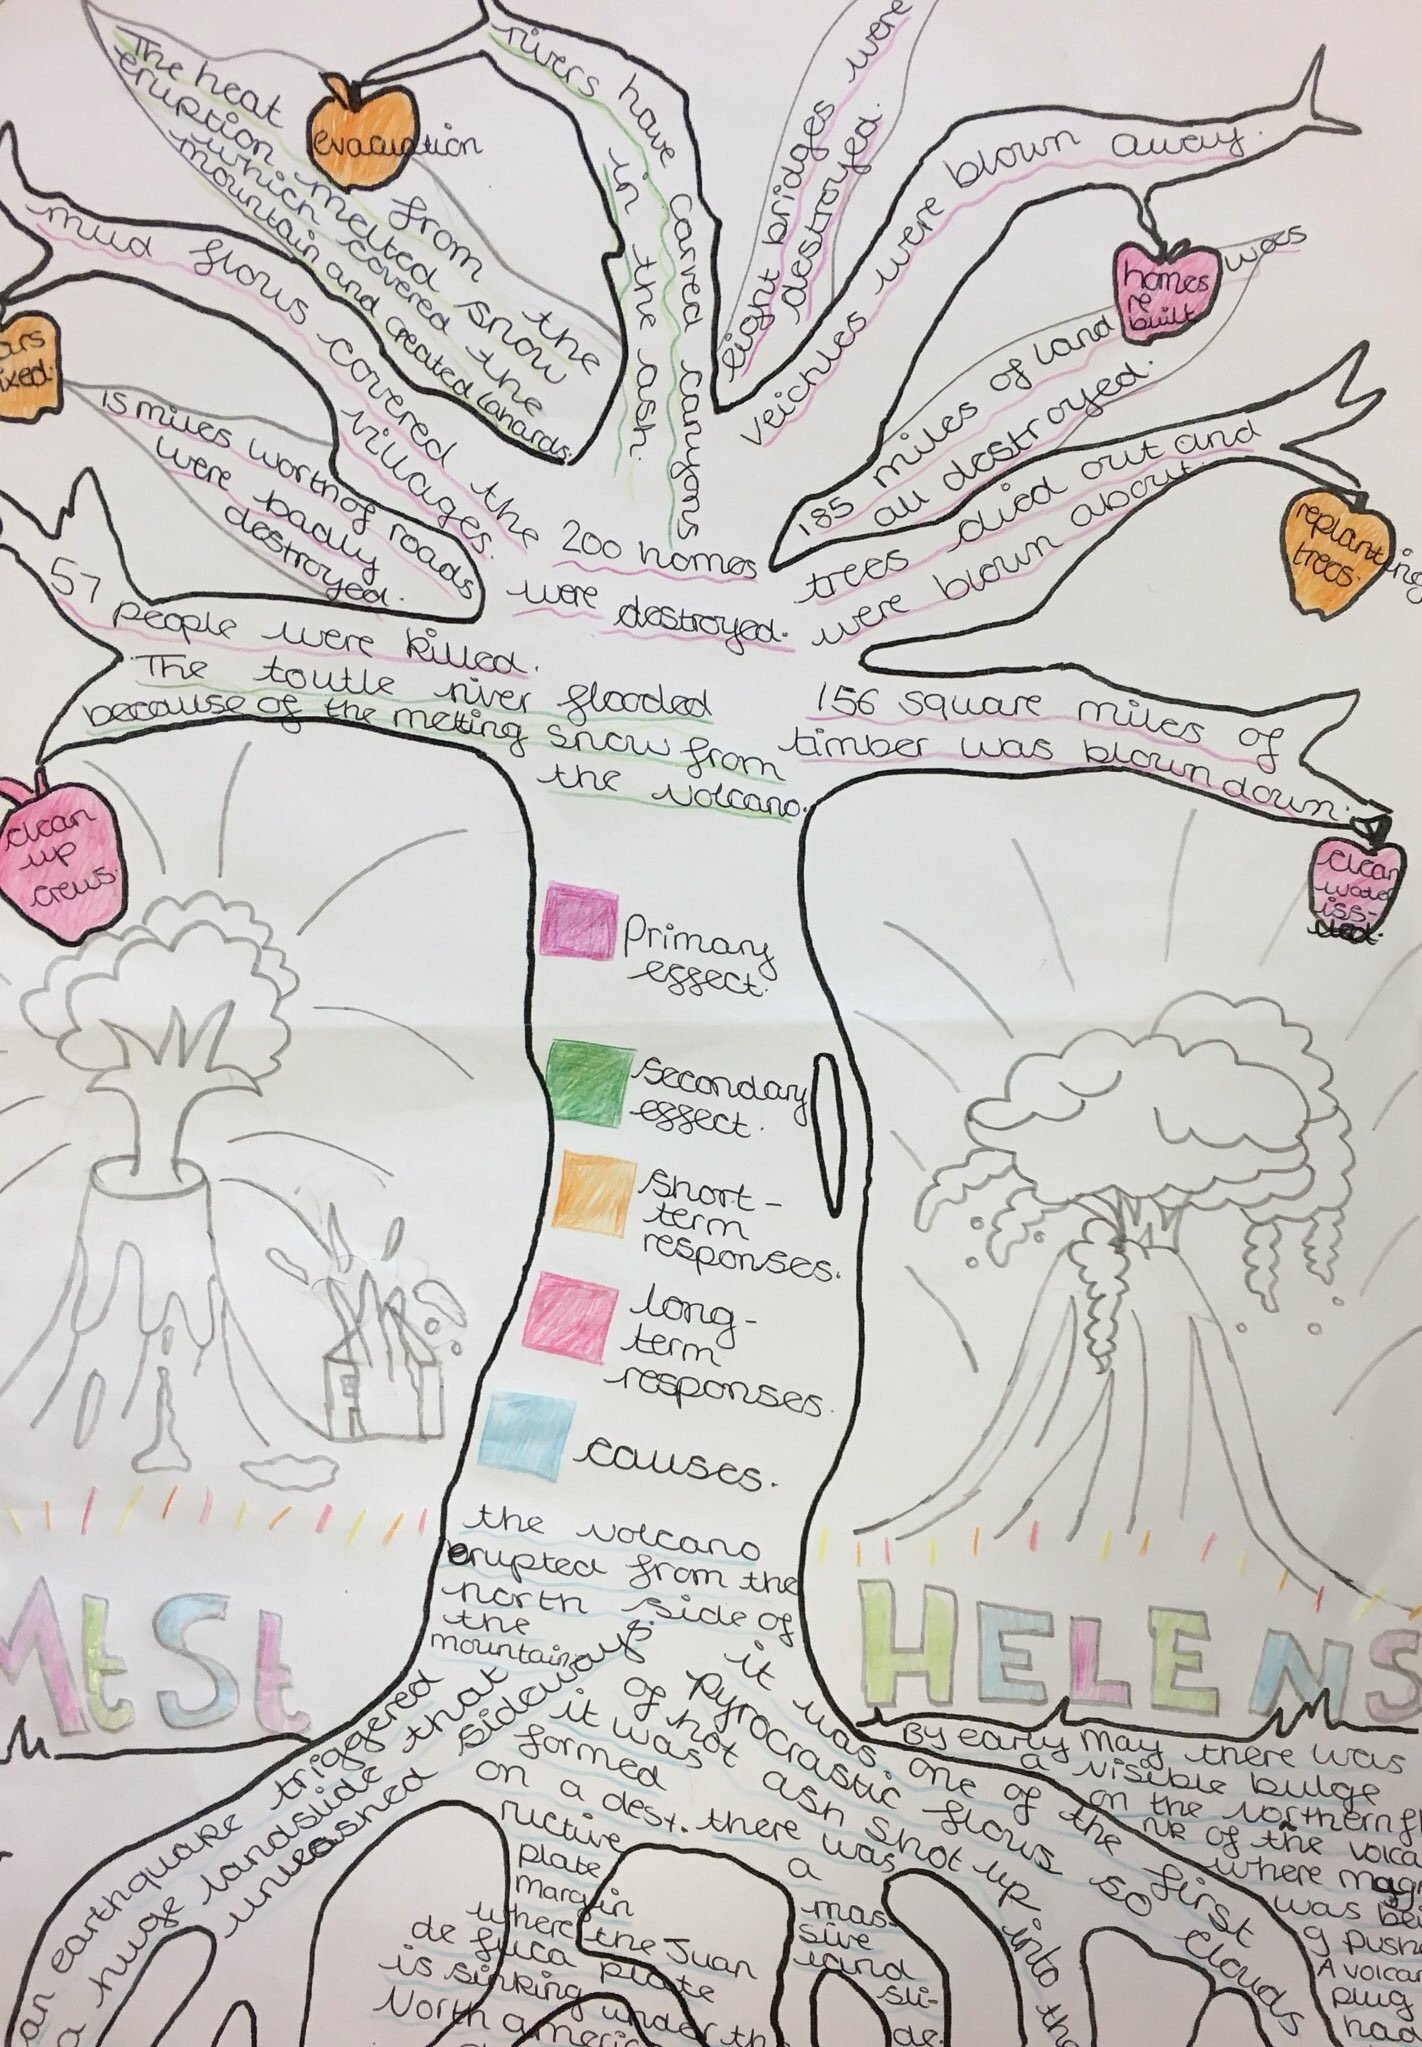 The heat from the
eruption melted snow
which covered the
mountain and created lahards.
evacuation
rivers have carved canyons
in the ash.
eight bridges were
destroyed.
veichles were blown away.
homes
re
built
mud flows covered the
villages.
185 miles of land was
all destroyed.
15 miles worth of roads
were badly
destroyed.
trees died out and
were blown about.
replanting
trees.
200 homes
were destroyed.
57
people were killed.
The toutle river flooded
because of the melting snow from
the volcano.
156 square miles of
timber was blown down.
clean
up
crews.
clean
Primary
effect.
secondary
effect.
short-
term
responses.
long-
term
responses.
causes.
the volcano
erupted from the
north side of
the
mountain
Mt St
HELENS
an earthquake triggered
a huge landslide that
unleashed sideways
it was one of the first
pyrocrastic flows so clouds
of hot ash shot up into the
it was
formed
on a dest.
ructive
plate
margin
where the Juan
de fuca plate
is sinking under
North
there was
a
mas-
sive
land
sli-
de.
By early May there was
a visible bulge
on the northern
of the
where
was
A
plug
had